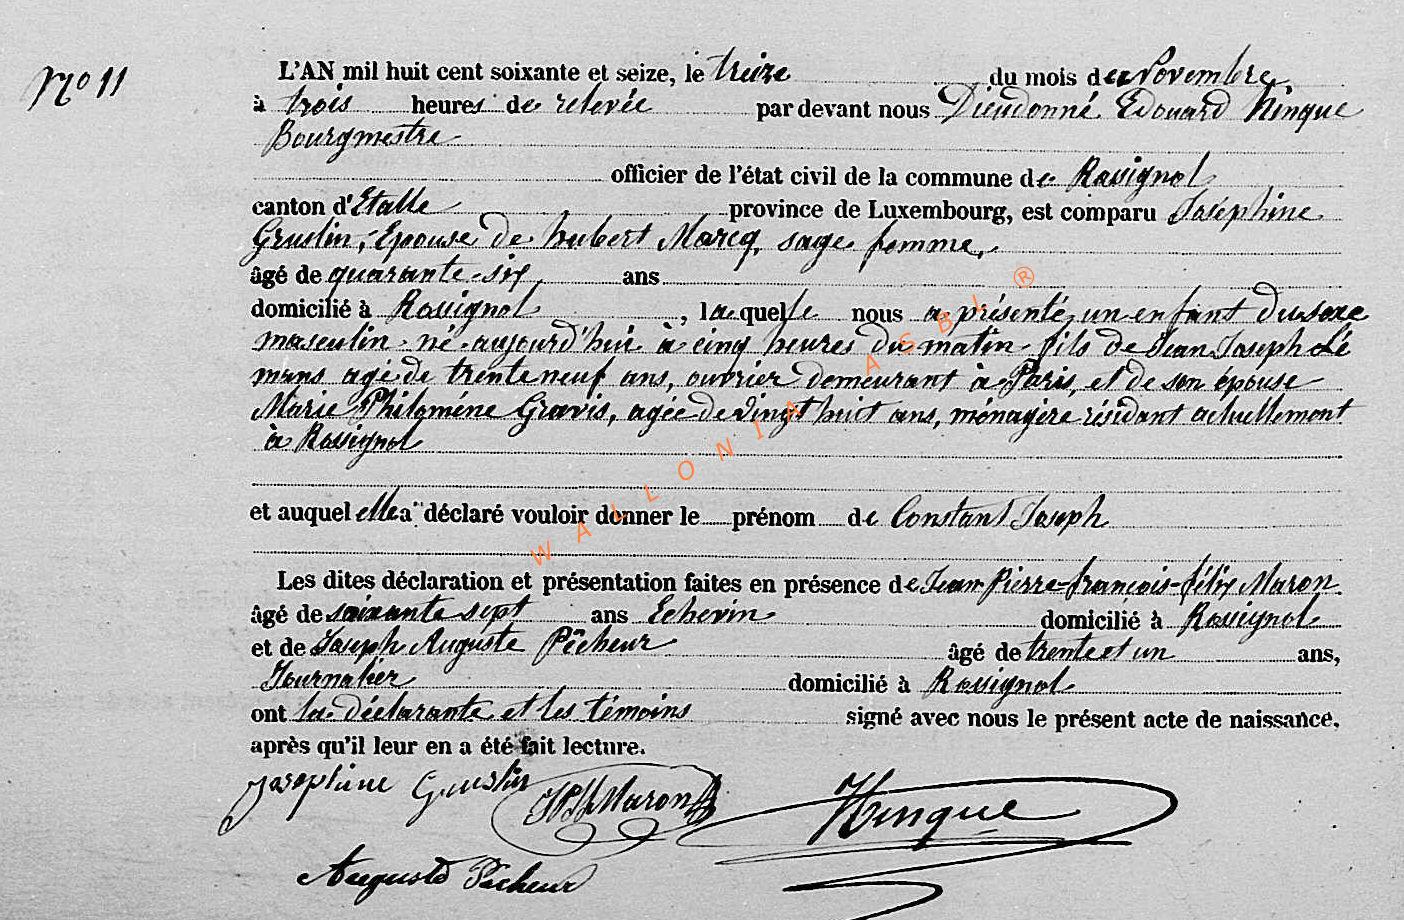 No 11
L'AN mil huit cent soixante et seize, le treize du mois de Novembre
à trois heures de relevée par devant nous Dieudonné Edouard Hinque
Bourgmestre
officier de l'état civil de la commune de Rossignol
canton d'Etalle province de Luxembourg, est comparu Joséphine
Gruslin, Epouse de hubert Marcq, sage femme,
âgé de quarante-six ans
domicilié à Rossignol, laquelle nous a présenté, un enfant du sexe
masculin né aujourd'hui à cinq heures du matin fils de Jean Joseph Lé
mans agé de trente neuf ans, ouvrier demeurant à Paris, et de son épouse
Marie Philoméne Gravis, agée de vingt huit ans, ménagère résidant actuellement
à Rossignol
et auquel elle a déclaré vouloir donner le prénom de Constant Joseph
Les dites déclaration et présentation faites en présence de Jean Pierre-françois-félix Maron
âgé de soixante sept ans Echevin domicilié à Rossignol
et de Joseph Auguste Pêcheur âgé de trente et un ans,
Journalier domicilié à Rossignol
ont la déclarante et les témoins signé avec nous le présent acte de naissance,
après qu'il leur en a été fait lecture.
Joséphine Gruslin Maron Hinque
Auguste Pêcheur
WALLONIA ASBL ®